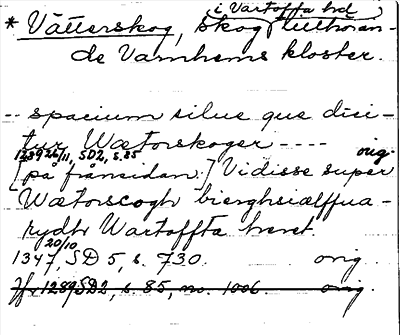 i Vartofta hd
* Vätterskog, skog tillhöran-
de Varnhems kloster.
-- spacium silue que dici-
tur Wætorskoger ----
1289 26/11, SD2, s. 85 orig.
[på frånsidan:] Vidisse super
Wætorscogh bierghsiælffua-
rydh Wartoffta heret.
1347 20/10, SD 5, s. 730. orig.
Jfr 1289 SD2, s. 85, no. 1006 orig.